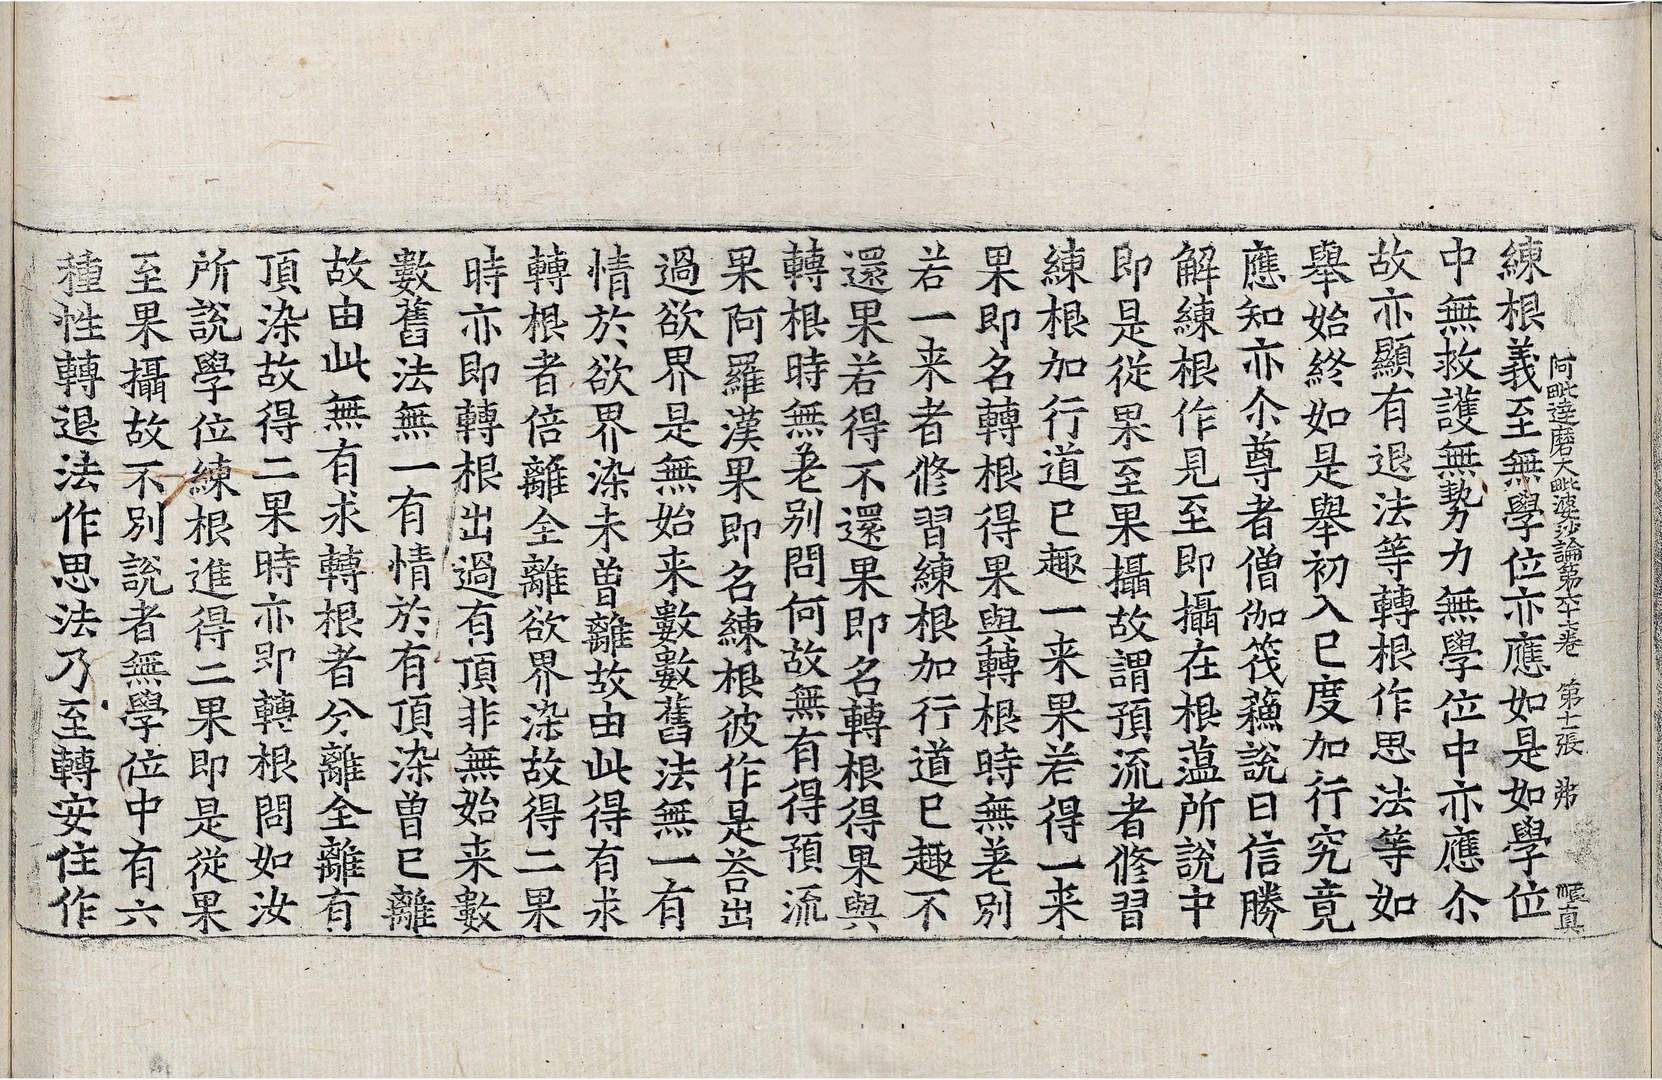 阿毗達磨大毗婆沙論第六十七卷　第十一張　弗　順真
練根義至無學位亦應如是如學位
中無救護無勢力無學位中亦應尒
故亦顯有退法等轉根作思法等如
舉始終如是舉初入已度加行究竟
應知亦尒尊者僧伽筏蘓說曰信勝
解練根作見至即攝在根蘊所說中
即是從果至果攝故謂預流者修習
練根加行道已趣一来果若得一来
果即名轉根得果與轉根時無差別
若一来者修習練根加行道已趣不
還果若得不還果即名轉根得果與
轉根時無差別問何故無有得預流
果阿羅漢果即名練根彼作是荅出
過欲界是無始来數數舊法無一有
情於欲界染未曾離故由此得有求
轉根者倍離全離欲界染故得二果
時亦即轉根出過有頂非無始来數
數舊法無一有情於有頂染曾已離
故由此無有求轉根者分離全離有
頂染故得二果時亦即轉根問如汝
所說學位練根進得二果即是從果
至果攝故不別說者無學位中有六
種性轉退法作思法乃至轉安住作